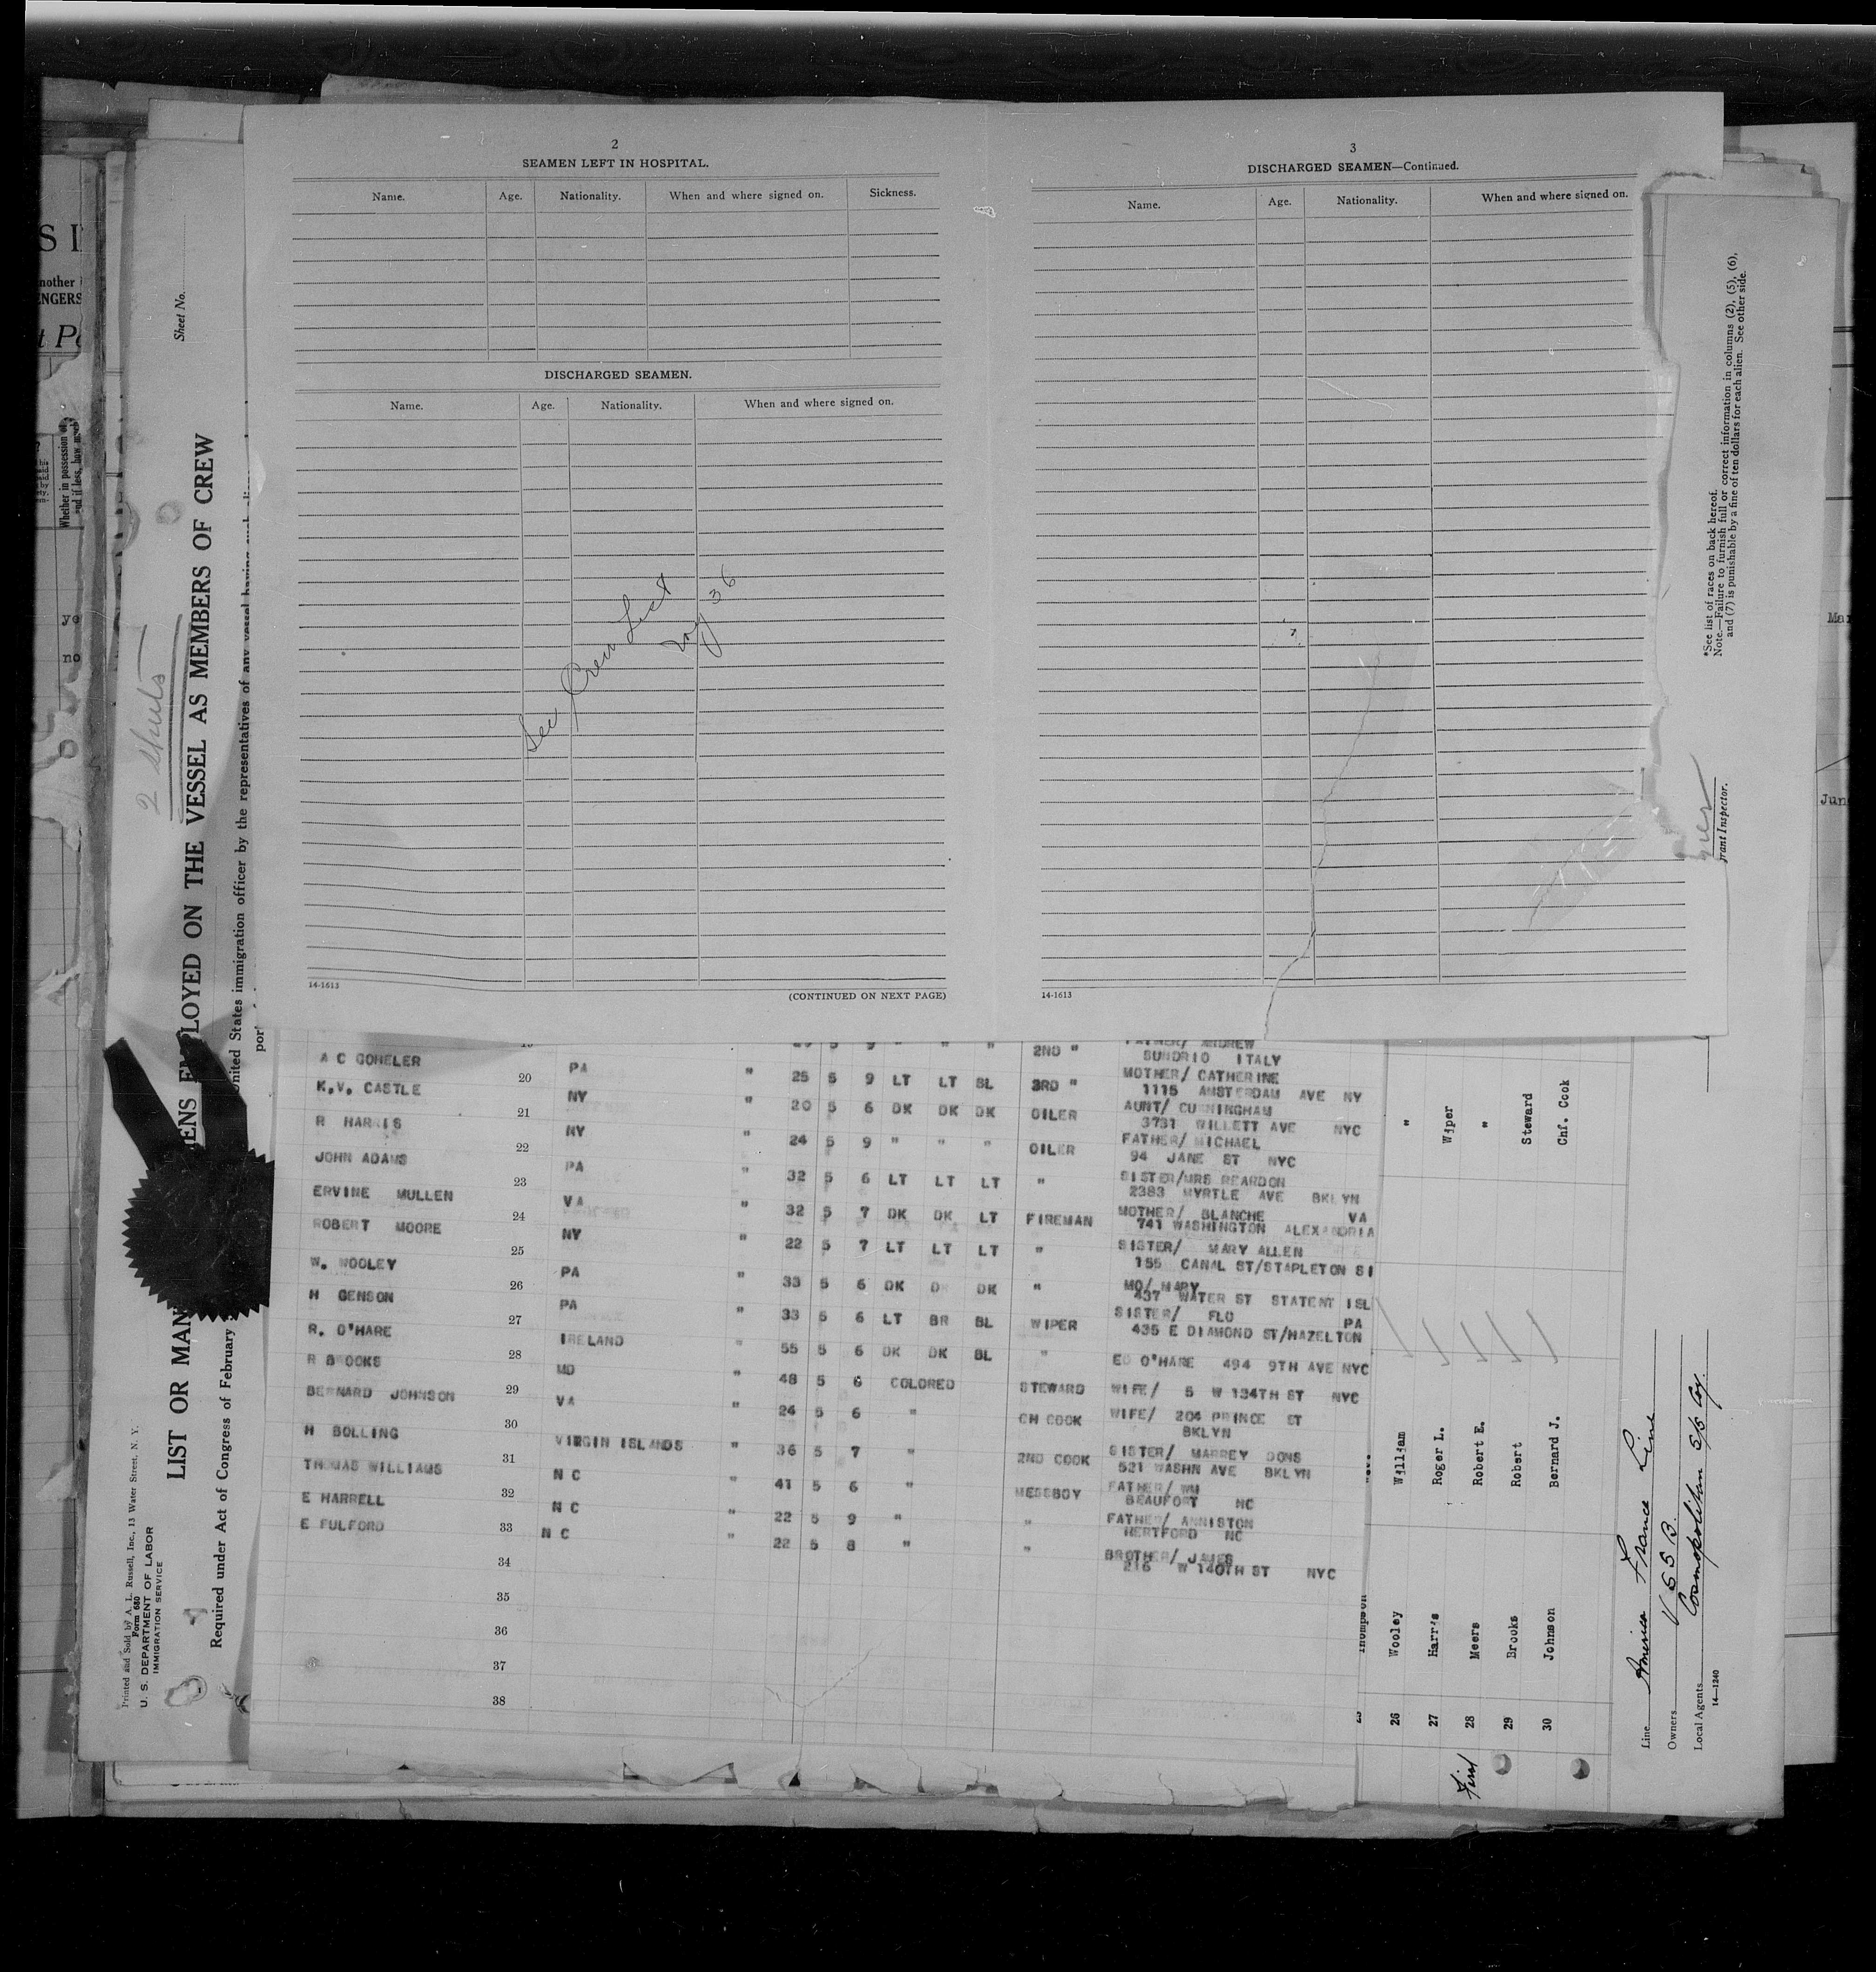 2
SEAMEN LEFT IN HOSPITAL.
Name. Age. Nationality. When and where signed on. Sickness.
DISCHARGED SEAMEN.
Name. Age. Nationality. When and where signed on.
See Crew List
Voy 36
14-1613
(CONTINUED ON NEXT PAGE)
3
DISCHARGED SEAMEN—Continued.
Name. Age. Nationality. When and where signed on.
14-1613
19 5 9 " " " 2ND " FATHER/ ANDREW
SUNDRIO ITALY
A C GOHELER 20 PA " 25 5 9 LT LT BL 3RD " MOTHER/ CATHERINE
1115 AMSTERDAM AVE NY
K.V. CASTLE 21 NY " 20 5 6 DK DK DK OILER AUNT/ CUNNINGHAM
3731 WILLETT AVE NYC
R HARRIS 22 NY " 24 5 9 " " " OILER FATHER/ MICHAEL
94 JANE ST NYC
JOHN ADAMS 23 PA " 32 5 6 LT LT LT " SISTER/MRS REARDON
2383 MYRTLE AVE BKLYN
ERVINE MULLEN 24 VA " 32 5 7 DK DK LT FIREMAN MOTHER/ BLANCHE VA
741 WASHINGTON ALEXANDRIA
ROBERT MOORE 25 NY " 22 5 7 LT LT LT " SISTER/ MARY ALLEN
155 CANAL ST/STAPLETON SI
W. WOOLEY 26 PA " 33 5 6 DK D DK " MO/ MARY
437 WATER ST STATENT ISL
H GENSON 27 PA " 33 5 6 LT BR BL WIPER SISTER/ FLO PA
435 E DIAMOND ST/HAZELTON
R. O'HARE 28 IRELAND " 55 5 6 DK DK BL " ED O'HARE 494 9TH AVE NYC
R BROOKS 29 MD " 48 5 6 COLORED STEWARD WIFE/ 5 W 134TH ST NYC
BERNARD JOHNSON 30 VA " 24 5 6 " CH COOK WIFE/ 204 PRINCE ST
BKLYN
H BOLLING 31 VIRGIN ISLANDS " 36 5 7 " 2ND COOK SISTER/ MARREY DONS
521 WASHN AVE BKLYN
THOMAS WILLIAMS 32 N C " 41 5 6 " MESSBOY FATHER/ WM
BEAUFORT NC
E HARRELL 33 N C " 22 5 9 " " FATHER/ ANNISTON
HERTFORD NC
E FULFORD 34 N C " 22 5 8 " " BROTHER/ JAMES
216 W 140TH ST NYC
35
36
37
38
Sheet No.
2 sheets
LIST OR MAN ENS EMPLOYED ON THE VESSEL AS MEMBERS OF CREW
Required under Act of Congress of February
United States immigration officer by the representatives of any vessel having such
por
Printed and Sold by A. L. Russell, Inc., 13 Water Street, N. Y.
Form 680
U. S. DEPARTMENT OF LABOR
IMMIGRATION SERVICE
nother
ENGERS
t Po
Whether in possession of
and if less, how much
ye
no
*See list of races on back hereof.
Note.—Failure to furnish full or correct information in columns (2), (5), (6),
and (7) is punishable by a fine of ten dollars for each alien. See other side.
rant Inspector.
Mar
Jun
Thompson
26 Wooley William "
27 Harris Roger L. Wiper
28 Meers Robert E. "
29 Brooks Robert Steward
30 Johnson Bernard J. Cnf. Cook
Line America France Line
Owners U S S B.
Local Agents Cosmopolitan S/S Coy.
14—1240